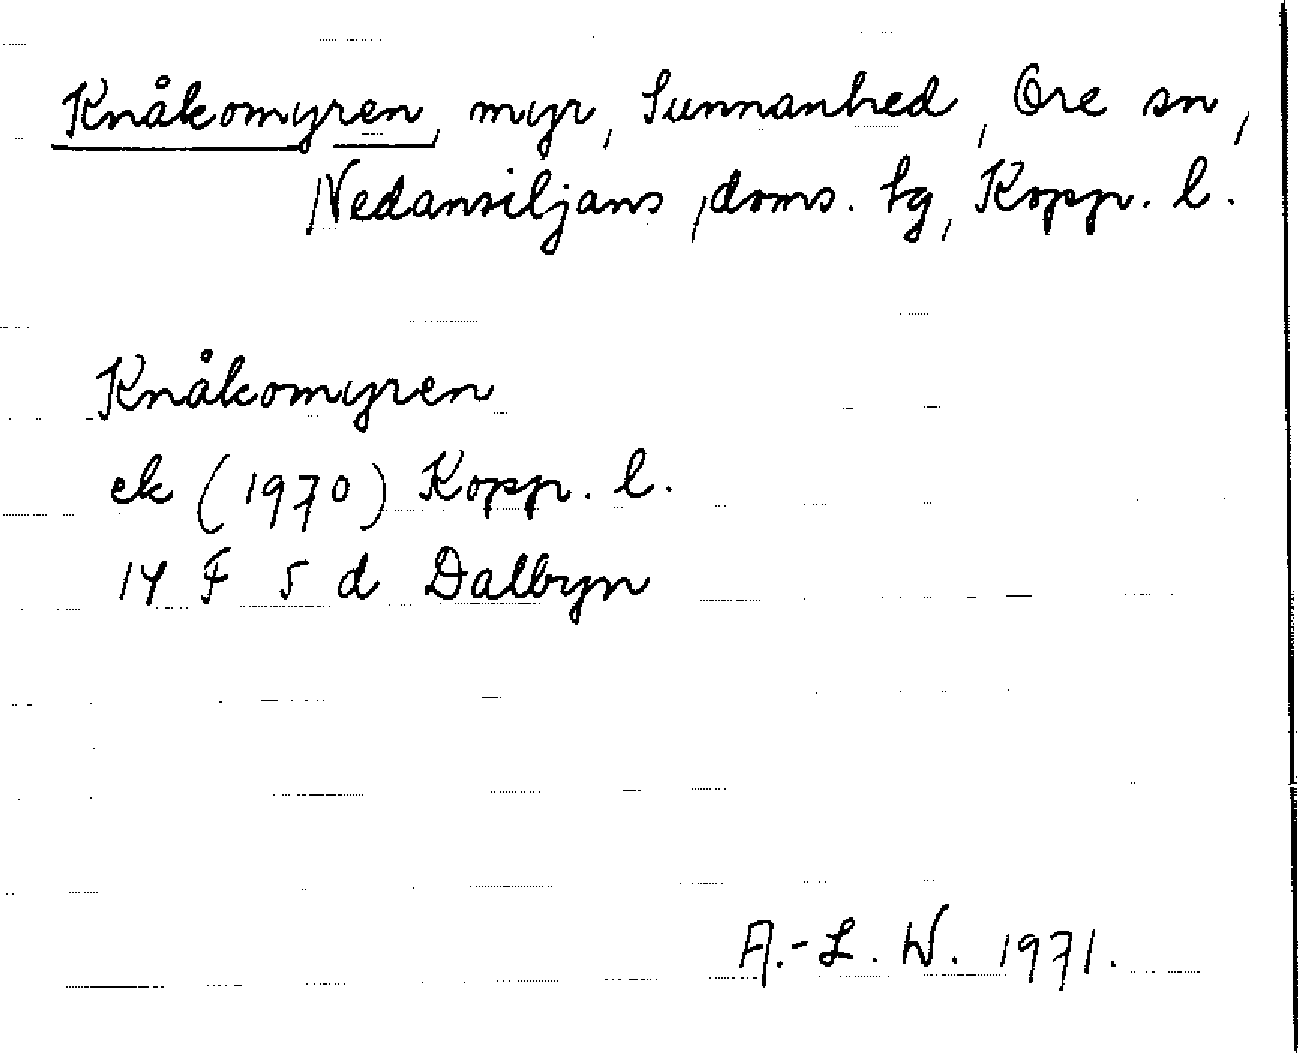 Knåkomyren, myr, Sunnanhed, Ore sn,
Nedansiljans, doms. tg, Kopp. l.
Knåkomyren
ek (1970) Kopp. l.
14 F 5 d Dalbyn
A.-L. W. 1971.